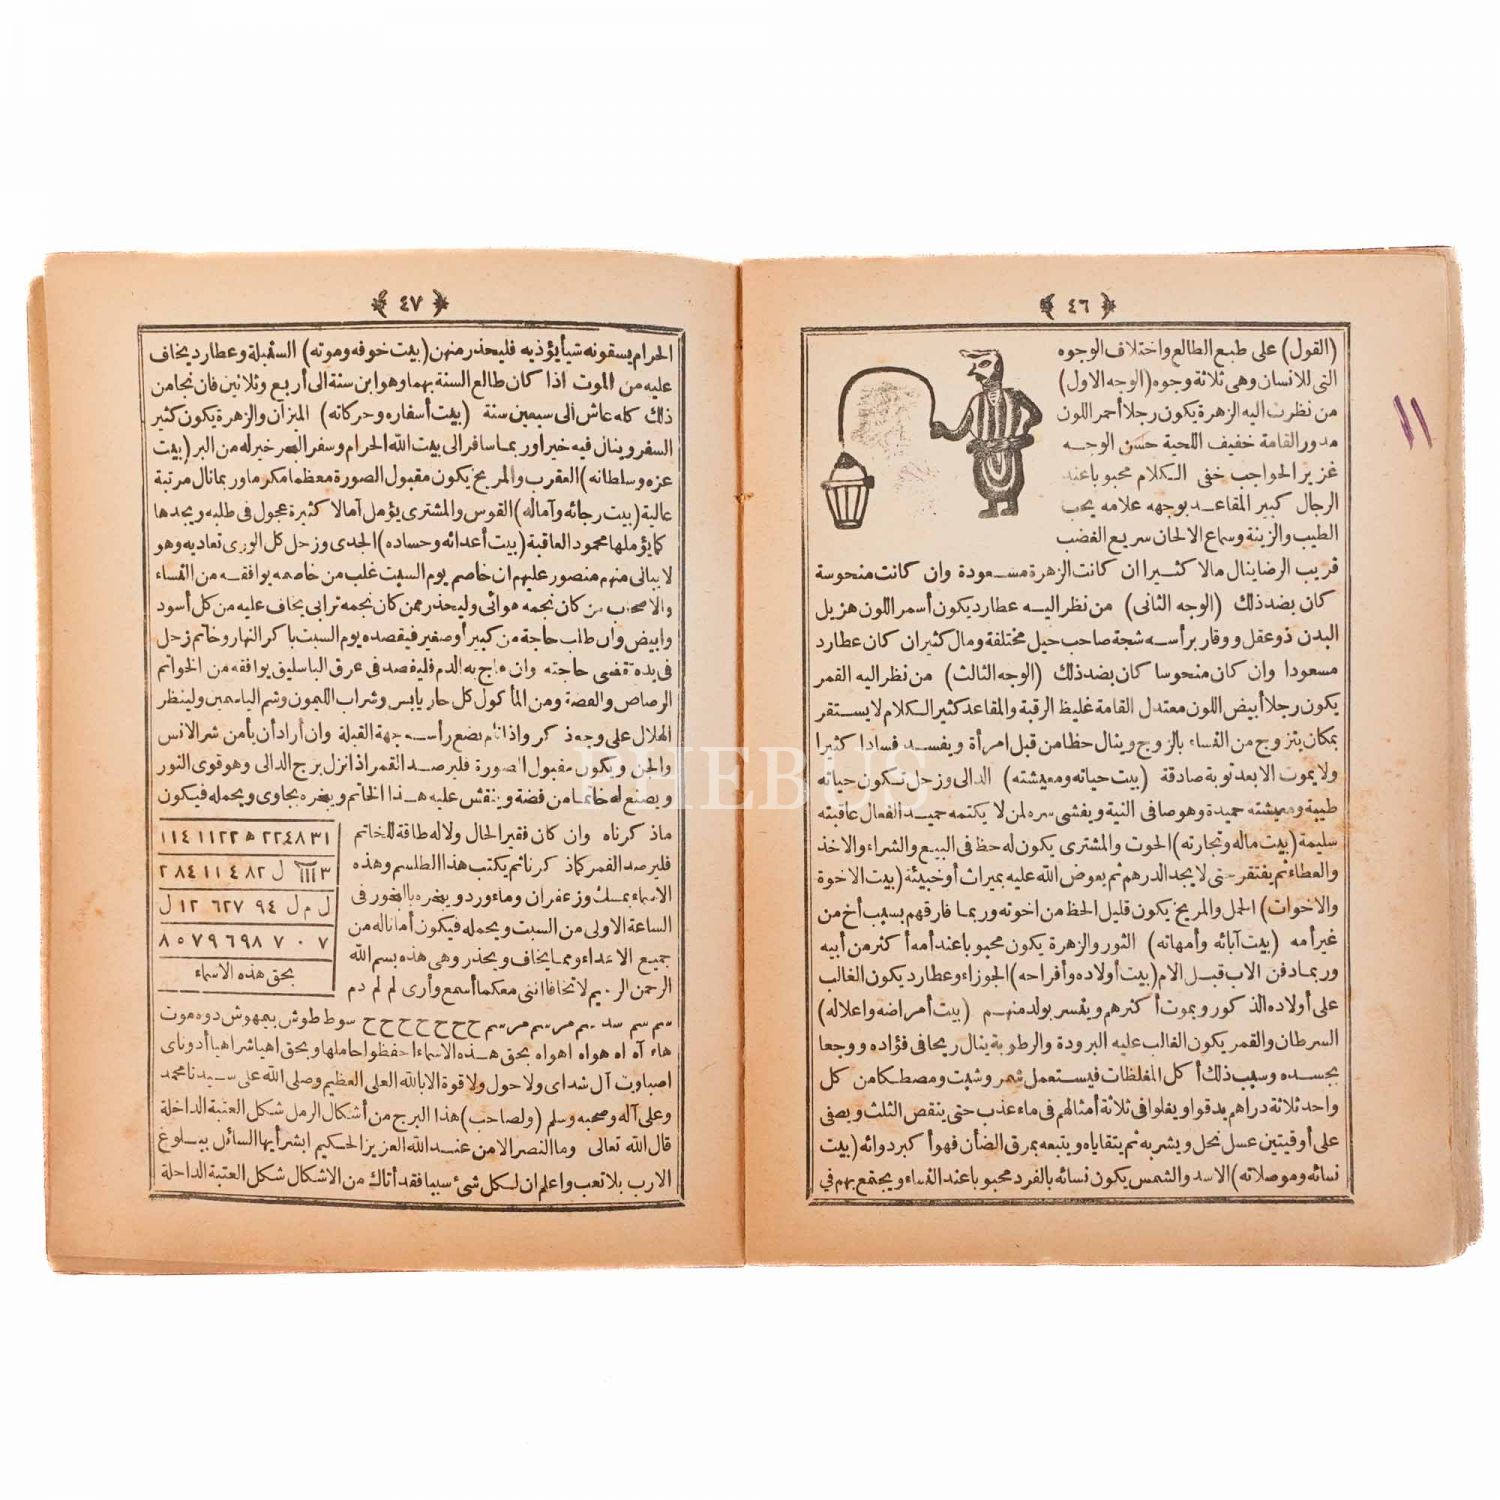 ٤٦
(القول) على طبع الطالع واختلاف الوجوه
التى للانسان وهى ثلاثة وجوه (الوجه الاول)
من نظرت اليه الزهرة يكون رجلا أحمر اللون
مدور القامة خفيف اللحية حسن الوجه
غزير الحواجب خفى الكلام محبوبا عند
الرجال كبير المقاعد بوجهه علامه يحب
الطيب والزينة وسماع الالحان سريع الغضب
قريب الرضا ينال مالا كثيرا ان كانت الزهرة مسعودة وان كانت منحوسة
كان بضد ذلك (الوجه الثانى) من نظر اليه عطارد يكون أسمر اللون هزيل
البدن ذو عقل ووقار برأسه شجة صاحب حيل مختلفة ومال كثير ان كان عطارد
مسعودا وان كان منحوسا كان بضد ذلك (الوجه الثالث) من نظر اليه القمر
يكون رجلا أبيض اللون معتدل القامة غليظ الرقبة والمقاعد كثير الكلام لا يستقر
بمكان يتزوج من النساء بالزوج وينال حظا من قبل امرأة ويفسد فسادا كثيرا
ولا يموت الا بعد توبة صادقة (بيت حياته ومعيشته) الدالى وزحل تكون حياته
طيبة ومعيشته حميدة وهو صافى النية ويفشى سره لمن لا يكتمه حميد الفعال عاقبته
سليمة (بيت ماله وتجارته) الحوت والمشترى يكون له حظ فى البيع والشراء والاخذ
والعطاء ثم يفتقر حتى لا يجد الدرهم ثم يعوض الله عليه بميراث أو خبيئة (بيت الاخوة
والاخوات) الحمل والمريخ يكون قليل الحظ من اخوته وربما فارقهم بسبب أخ من
غير أمه (بيت آبائه وأمهاته) الثور والزهرة يكون محبوبا عند أمه أكثر من أبيه
وربما دفن الاب قبل الام (بيت أولاده وأفراحه) الجوزاء وعطارد يكون الغالب
على أولاده الذكور ويموت أكثرهم ويفسر بولد منهم (بيت أمراضه واعلاله)
السرطان والقمر يكون الغالب عليه البرودة والرطوبة ينال ريحا فى فؤاده ووجعا
بجسده وسبب ذلك أكل المغلظات فيستعمل شمر وشبت ومصطكا من كل
واحد ثلاثة دراهم يدقوا ويغلوا فى ثلاثة أمثالهم فى ماء عذب حتى ينقص الثلث ويصفى
على أوقيتين عسل نحل ويشربه ثم يتقاياه ويتبعه بمرق الضأن فهو أكبر دوائه (بيت
نسائه وموصلاته) الاسد والشمس يكون نسائه بالفرد محبوبا عند النساء ويجتمع بهم فى
٤٧
الحرام يسقونه شيأ يؤذيه فليحذر منهن (بيت خوفه وموته) السنبلة وعطارد يخاف
عليه من الموت اذا كان طالع السنة بهما وهو ابن سنة الى أربع وثلاثين فان نجا من
ذلك كله عاش الى سبعين سنة (بيت أسفاره وحركاته) الميزان والزهرة يكون كثير
السفر وينال فيه خيرا وربما سافر الى بيت الله الحرام وسفر البحر خير له من البر (بيت
عزه وسلطانه) العقرب والمريخ يكون مقبول الصورة معظما مكرما وربما نال مرتبة
عالية (بيت رجائه وآماله) القوس والمشترى يؤمل آمالا كثيرة عجول فى طلبه ويجدها
كما يؤملها محمود العاقبة (بيت أعدائه وحساده) الجدى وزحل كل الورى تعاديه وهو
لا يبالى منهم منصور عليهم ان خاصم يوم السبت غلب من خاصمه يوافقه من النساء
والاصحاب من كان نجمه هوائى وليحذر ممن كان نجمه ترابى يخاف عليه من كل أسود
وابيض وان طلب حاجة من كبير أو صغير فيقصده يوم السبت باكر النهار وخاتم زحل
فى يده تقضى حاجته وان هاج به الدم فليفصد فى عرق الباسليق يوافقه من الخواتم
الرصاص والفضة ومن المأكول كل حار يابس وشراب الليمون وشم الياسمين ولينظر
الهلال على وجه ذكر واذا نام يضع رأسه جهة القبلة وان أراد أن يأمن شر الانس
والجن ويكون مقبول الصورة فليرصد القمر اذا نزل برج الدالى وهو قوى النور
ويصنع له خاتما من فضة وينقش عليه هذا الخاتم ويبخره بجاوى ويحمله فيكون
ماذكرناه وان كان فقير الحال ولا له طاقة للخاتم
فليرصد القمر كما ذكرنا ثم يكتب هذا الطلسم وهذه
الاسماء بمسك وزعفران وماء ورد ويبخره بالبخور فى
الساعة الاولى من السبت ويحمله فيكون أمانا له من
جميع الاعداء ومما يخاف ويحذر وهى هذه بسم الله
الرحمن الرحيم لا تخافا اننى معكما أسمع وأرى لم لم دم
١١٤١١٢٢ ه ٢٢٤٨٣١
٢٨٤١١٤٨٢ ل ٣
ل م ل ٩٤ ٦٢٧ ١٢ ل
٨٥٧٩٦٩٨٧٠٧
بحق هذه الاسماء
ح ح ح ح ح ح ح سوط طوش بمهوش دوه موت
هاء آه اه هواه اهواه بحق هذه الاسماء احفظوا حاملها وبحق اهيا شراهيا أدوناى
اصباوت آل شداى ولا حول ولا قوة الا بالله العلى العظيم وصلى الله على سيدنا محمد
وعلى آله وصحبه وسلم (ولصاحب) هذا البرج من أشكال الرمل شكل العتبة الداخلة
قال الله تعالى وما النصر الا من عند الله العزيز الحكيم ابشر أيها السائل ببلوغ
الارب بلا تعب واعلم ان لكل شئ سببا فقد أتاك من الاشكال شكل العتبة الداخلة
PHEBUS